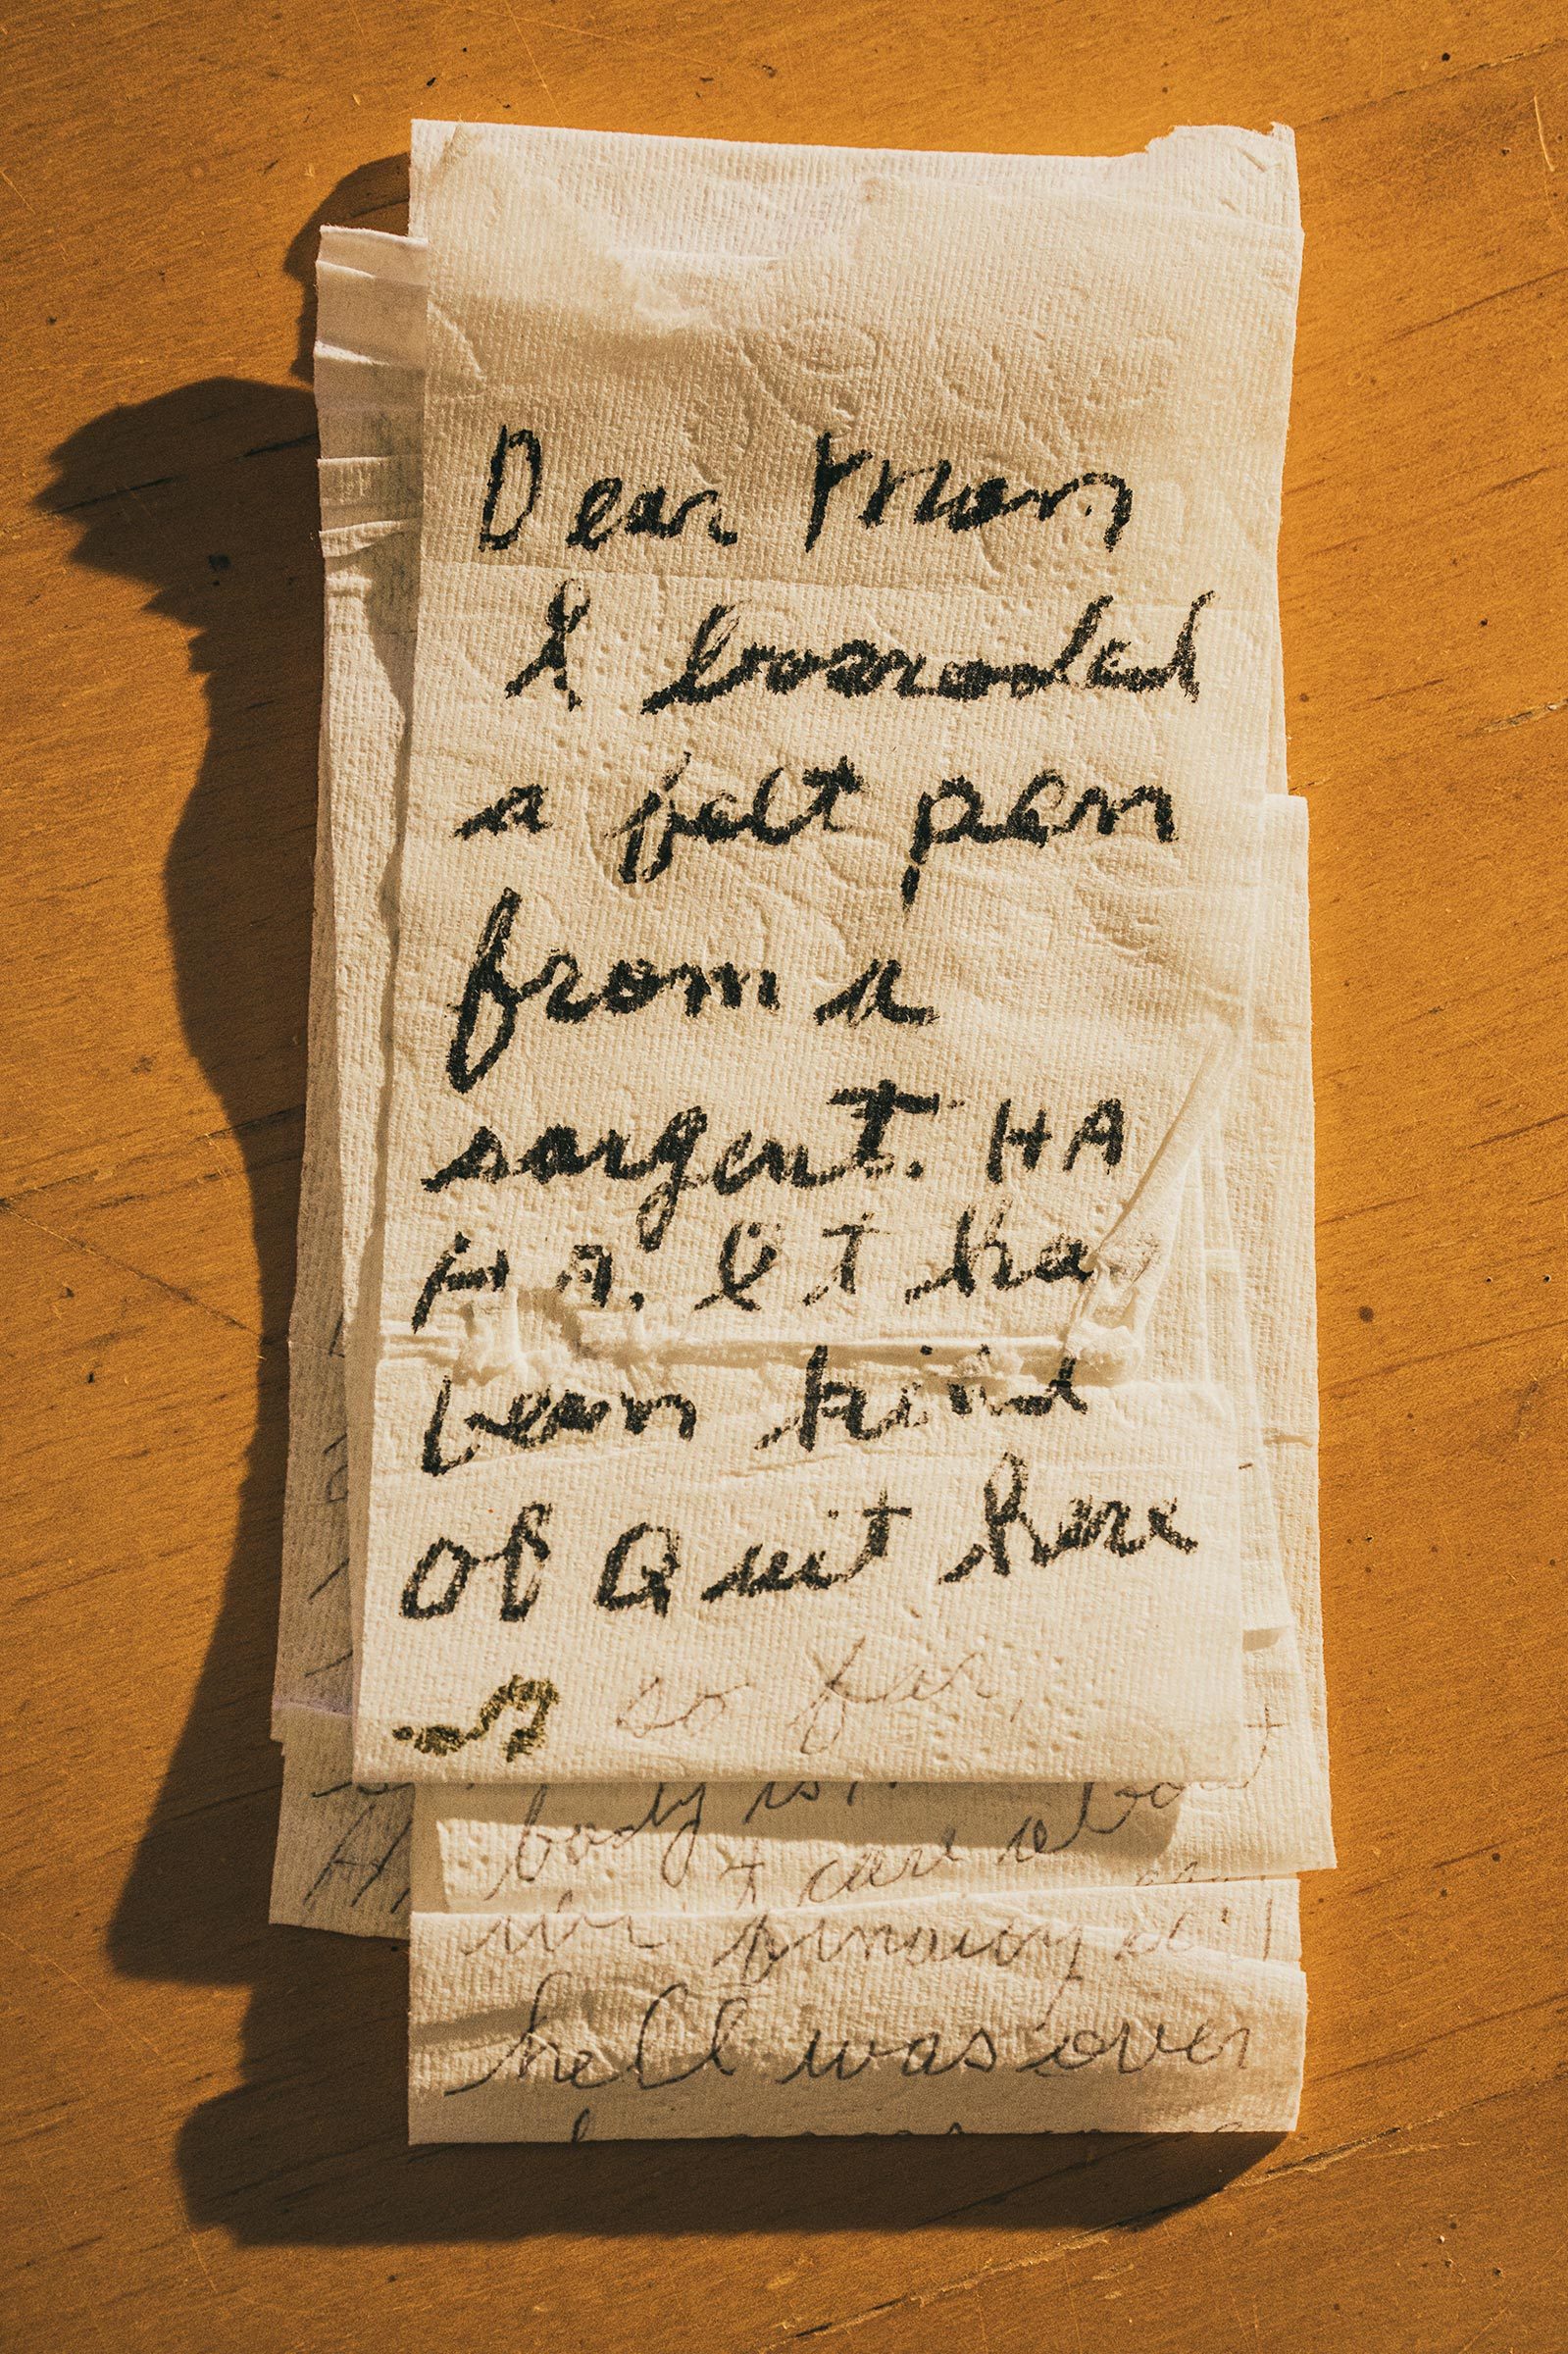 Dear Mom
I borrowed
a felt pen
from a
sargent. HA
HA. It has
been kind
of Quit here
so far,
body is
t care about
hell was over